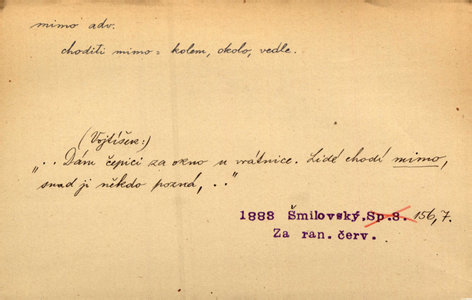 mimo adv.
choditi mimo = kolem, okolo, vedle.
(Vojtíšek:)
„. . Dám čepici za okno u vrátnice. Lidé chodí mimo,
snad ji někdo pozná, . ."
1883 Šmilovský, Sp. 3. 156, 7.
Za ran. červ.